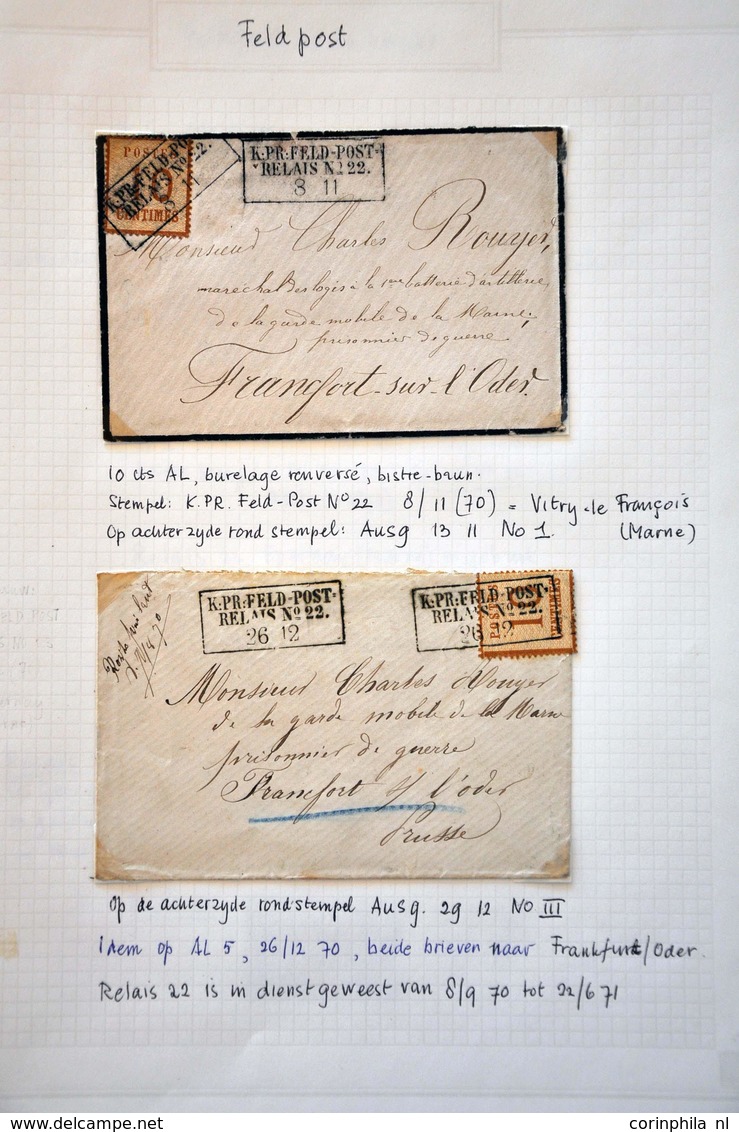 Feldpost
POSTES
CENTIMES
K:PR:FELD-POST-
RELAIS No 22.
8 11
K:PR:FELD-POST-
RELAIS No 22.
8 11
Monsieur Charles Rouyer,
maréchal des logis à la 1ère batterie d'artillerie,
de la garde mobile de la Marne,
prisonnier de guerre
Francfort-sur-l'Oder.
10 cts AL, burelage renversé, bistre-brun.
Stempel: K.PR. Feld-Post No 22 8/11 (70) = Vitry-le François
Op achterzyde rond stempel: Ausg 13 11 No 1. (Marne)
K:PR:FELD-POST-
RELAIS No 22.
26 12
K:PR:FELD-POST-
RELAIS No 22.
26 12
POSTES
10
CENTIMES
Monsieur Charles Rouyer
de la garde mobile de la Marne
prisonnier de guerre
Francfort s/ l'oder
Prusse
Op de achterzyde rondstempel Ausg. 29 12 No III
idem op AL 5, 26/12 70, beide brieven naar Frankfurt/Oder.
Relais 22 is in dienst geweest van 8/9 70 tot 22/6 71
corinphila nl